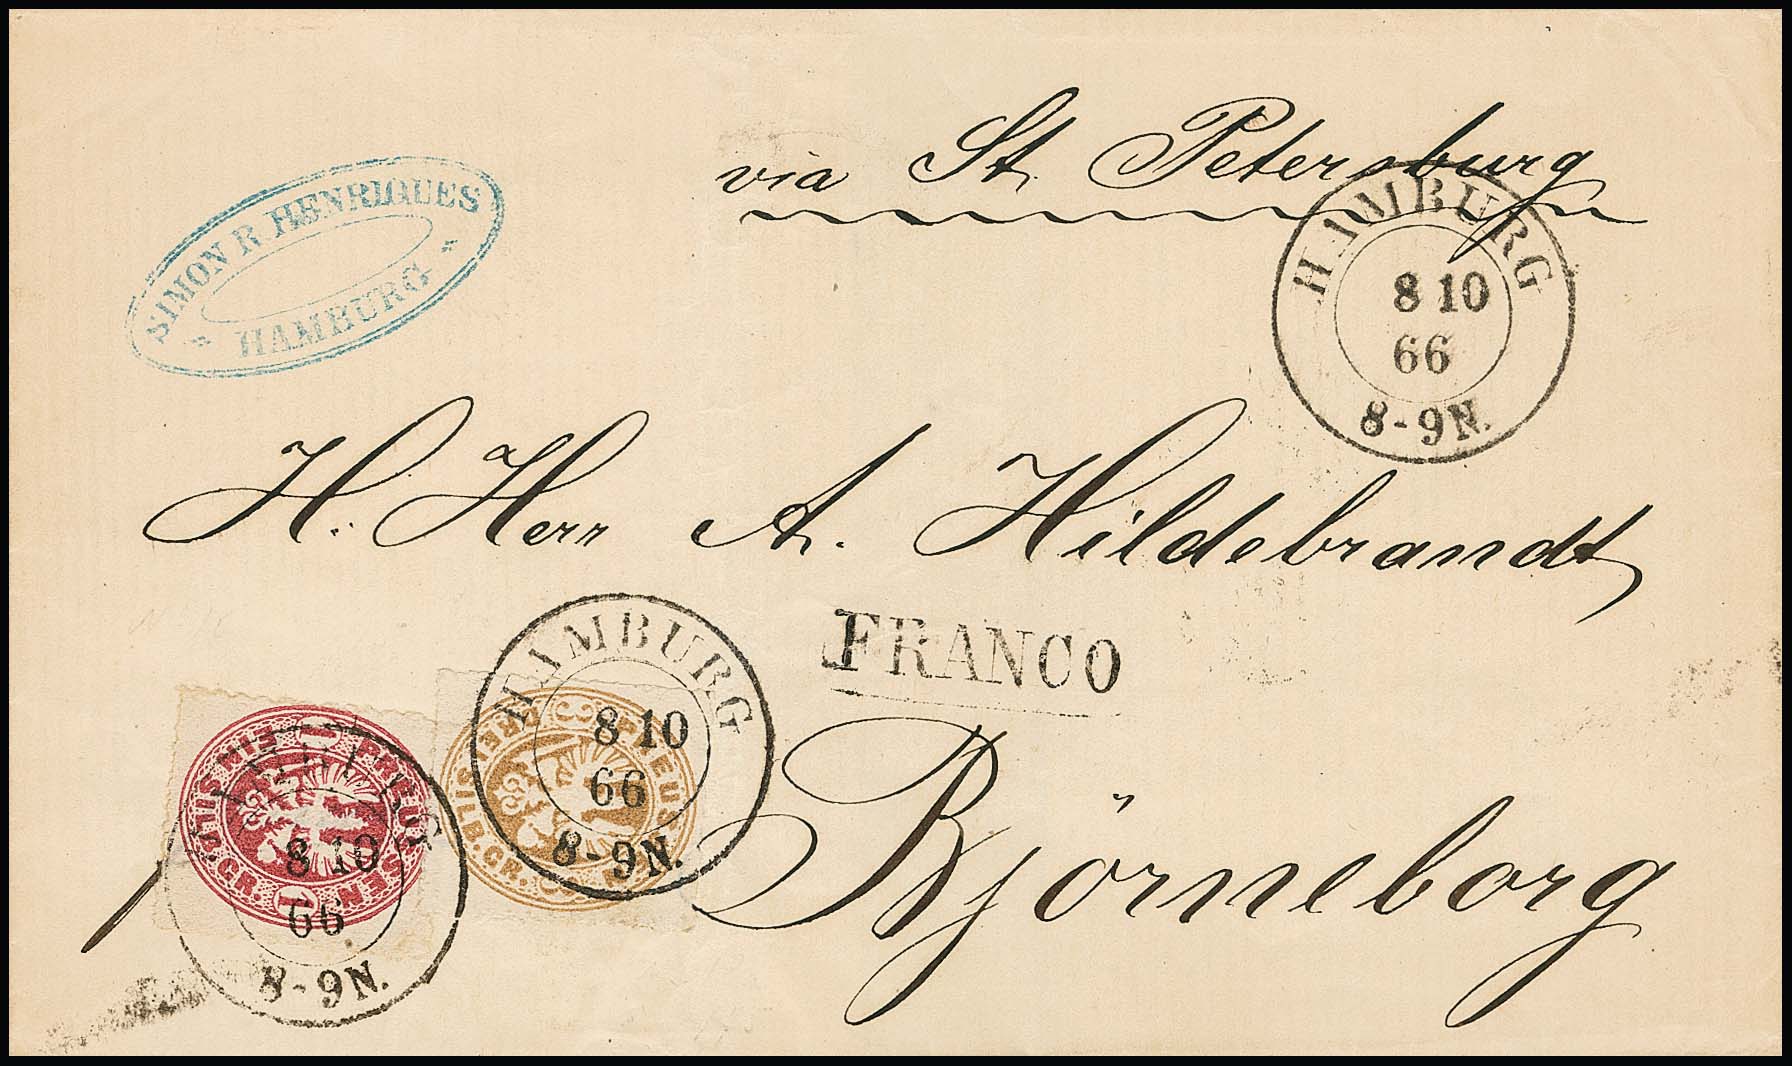 via St. Petersburg
SIMON R. HENRIQUES
HAMBURG
HAMBURG
8 10
66
8-9N.
H. Herr A. Hildebrandt
FRANCO
Björneborg
HAMBURG
8 10
66
8-9N.
PREUSSEN
SILB.GR.
HAMBURG
8 10
66
8-9N.
PREUSSEN
EIN
SILB.GR.